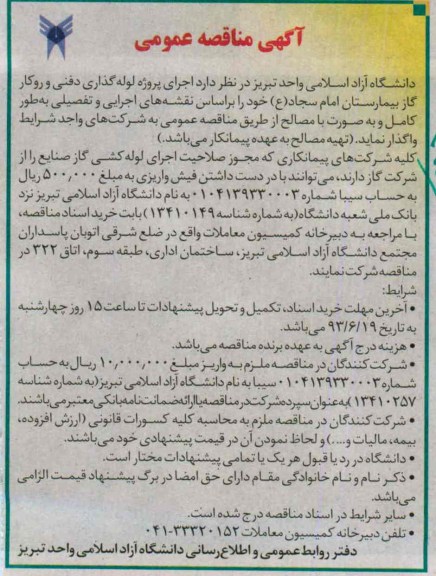 آگهی مناقصه عمومی
دانشگاه آزاد اسلامی واحد تبریز در نظر دارد اجرای پروژه لوله گذاری دفنی و روکار
گاز بیمارستان امام سجاد(ع) خود را براساس نقشه‌های اجرایی و تفصیلی به‌طور
کامل و به صورت با مصالح از طریق مناقصه عمومی به شرکت‌های واجد شرایط
واگذار نماید. (تهیه مصالح به عهده پیمانکار می‌باشد.)
کلیه شرکت‌های پیمانکاری که مجوز صلاحیت اجرای لوله کشی گاز صنایع را از
شرکت گاز دارند، می‌توانند با در دست داشتن فیش واریزی به مبلغ ۵۰۰٫۰۰۰ ریال
به حساب سیبا شماره ۰۱۰۴۱۳۹۳۳۰۰۰۳ به نام دانشگاه آزاد اسلامی تبریز نزد
بانک ملی شعبه دانشگاه (به شماره شناسه ۱۳۴۱۰۱۴۹) بابت خرید اسناد مناقصه،
با مراجعه به دبیرخانه کمیسیون معاملات واقع در ضلع شرقی اتوبان پاسداران
مجتمع دانشگاه آزاد اسلامی تبریز، ساختمان اداری، طبقه سوم، اتاق ۳۲۲ در
مناقصه شرکت نمایند.
شرایط:
• آخرین مهلت خرید اسناد، تکمیل و تحویل پیشنهادات تا ساعت ۱۵ روز چهارشنبه
به تاریخ ۹۳/۶/۱۹ می‌باشد.
• هزینه درج آگهی به عهده برنده مناقصه می‌باشد.
• شرکت کنندگان در مناقصه ملزم به واریز مبلغ ۱۰٫۰۰۰٫۰۰۰ ریال به حساب
شماره ۰۱۰۴۱۳۹۳۳۰۰۰۳ سیبا به نام دانشگاه آزاد اسلامی تبریز (به شماره شناسه
۱۳۴۱۰۲۵۷) به‌عنوان سپرده شرکت در مناقصه یا ارائه ضمانت نامه بانکی معتبر می‌باشند.
• شرکت کنندگان در مناقصه ملزم به محاسبه کلیه کسورات قانونی (ارزش افزوده،
بیمه، مالیات و....) و لحاظ نمودن آن در قیمت پیشنهادی خود می‌باشند.
• دانشگاه در رد یا قبول هر یک یا تمامی پیشنهادات مختار است.
• ذکر نام و نام خانوادگی مقام دارای حق امضا در برگ پیشنهاد قیمت الزامی
می‌باشد.
• سایر شرایط در اسناد مناقصه درج شده است.
• تلفن دبیرخانه کمیسیون معاملات ۳۳۳۲۰۱۵۲-۰۴۱
دفتر روابط عمومی و اطلاع رسانی دانشگاه آزاد اسلامی واحد تبریز